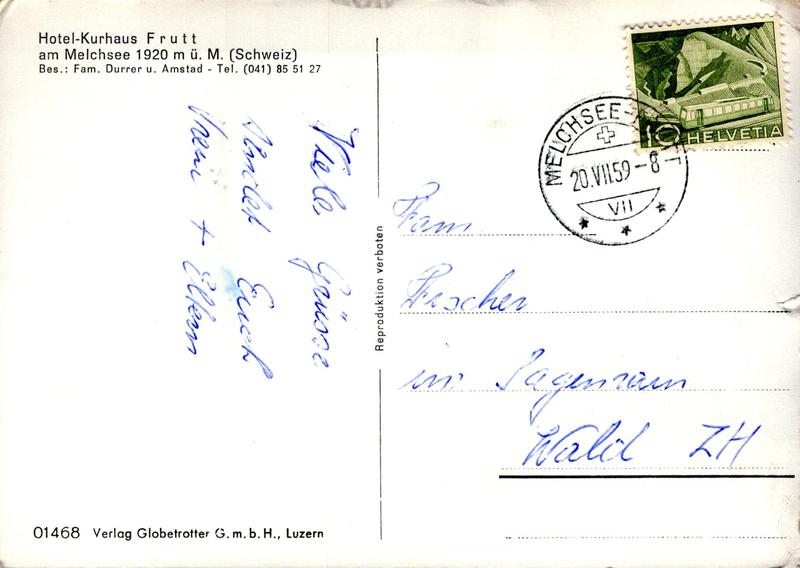 Hotel-Kurhaus Frutt
am Melchsee 1920 m ü. M. (Schweiz)
Bes.: Fam. Durrer u. Amstad - Tel. (041) 85 51 27
Viele Grüsse
sendet Euch
Vreni + Eltern
Reproduktion verboten
10 HELVETIA
MELCHSEE-
20.VII.59-8
VII
Fam.
Fischer
im Sagenrain
Wald ZH
01468 Verlag Globetrotter G.m.b.H., Luzern